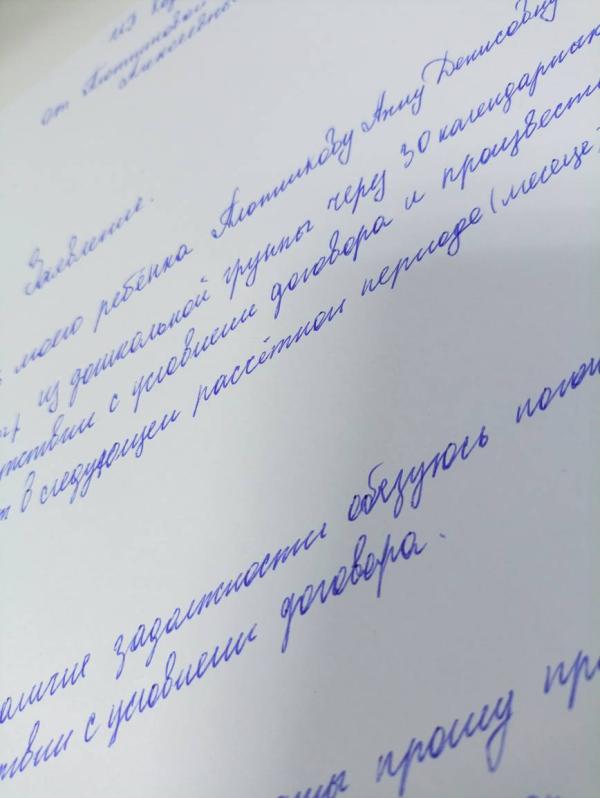 из
от Плотниковой
Алексеевны
Заявление.
моего ребёнка Плотникову Анну Денисовну
из дошкольной группы через 30 календарных
тствии с условиями договора и произвести
в следующем рассчётном периоде (месяце
аличие задолжности обязуюсь
твии с условиями договора.
прошу